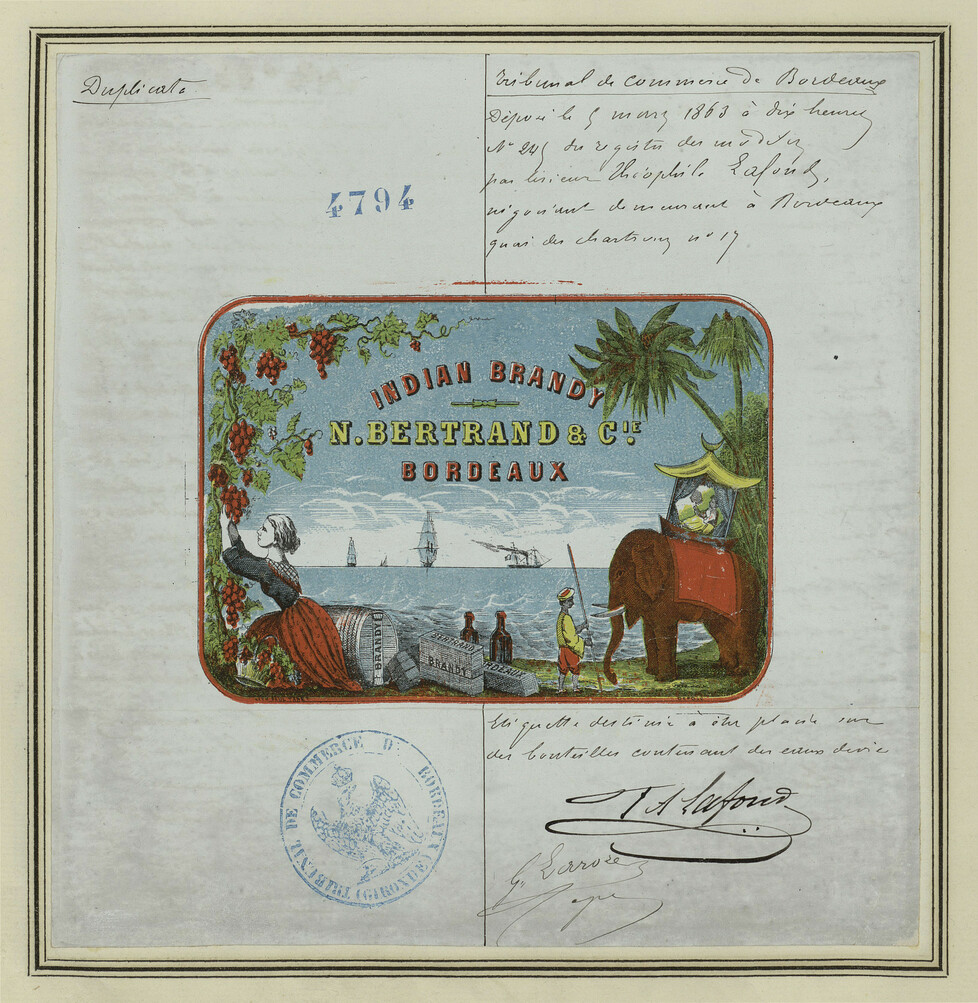 Duplicata
Tribunal de commerce de Bordeaux
Déposé le 5 mars 1863 à dix heures
N° 245 du registre des modèles
par le sieur Théophile Lafond,
négociant demeurant à Bordeaux
quai des chartrons n° 17
4794
INDIAN BRANDY
N. BERTRAND & CIE.
BORDEAUX
BRANDY
BERTRAND
BRANDY
BORDEAUX
Etiquette destinée à être placée sur
des bouteilles contenant des eaux de vie
T A Lafond
G. Larroze
TRIBUNAL DE COMMERCE D' BORDEAUX (GIRONDE)